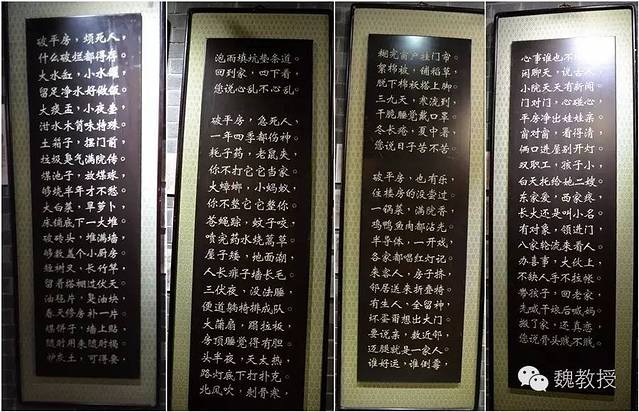 破平房，烦死人，
什么破烂都得存。
大水缸，小水罐，
留足净水好做饭。
大痰盂，小夜壶，
泔水木筲味特殊。
土箱子，摆门前，
垃圾臭气满院传。
煤池子，放煤球，
够烧半年才不愁。
大白菜，旱萝卜，
床桶底下一大堆。
破砖头，堆满墙，
够数盖个小厨房。
短树杈，长竹竿，
留着搭棚过伏天。
油毡片，臭油块，
春天修房补一片。
煤饼子，墙上贴，
随时用来随时揭。
炉灰土，可得要，
泡雨填坑垫条道。
回到家，四下看，
您说心乱不心乱。
破平房，急死人，
一年四季都伤神。
耗子药，老鼠夹，
你不打它它当家。
大蟑螂，小蚂蚁，
你不整它它整你。
苍蝇踪，蚊子咬，
喷完药水烧蒿草。
屋子矮，地面潮，
人长痱子墙长毛。
三伏夜，没法睡，
便道躺椅排成队。
大蒲扇，蹋拉板，
房顶睡觉得有胆。
头半夜，天太热，
路灯底下打扑克。
北风吹，刺骨寒，
糊完窗户挂门帘。
絮棉被，铺稻草，
脱下棉袄搭上脚。
三九天，寒流到，
干脆睡觉戴口罩。
冬长疮，夏中暑，
您说日子苦不苦。
破平房，也有乐，
住楼房的没尝过。
一锅菜，满院香，
鸡鸭鱼肉都沾光。
半导体，一开戏，
各家都唱红灯记。
来客人，房子挤，
邻居送来折叠椅。
有生人，全留神，
坏蛋甭想出大门。
要说亲，数近邻，
迈腿就是一家人。
谁好运，谁倒霉，
心事谁也不
闲聊天，说古人，
小院天天有新闻。
门对门，心碰心，
平房净出娃娃亲。
窗对窗，看得清，
俩口进屋别开灯。
双职工，孩子小，
白天托给她二嫂。
东家爱，西家疼，
长大还是叫小名。
有对象，领进门，
八家轮流来看人。
办喜事，大伙上，
不换人手不拉帐。
带孩子，回老家，
先喊干娘后喊妈。
搬了家，还真恋，
您说骨头贱不贱。
魏教授